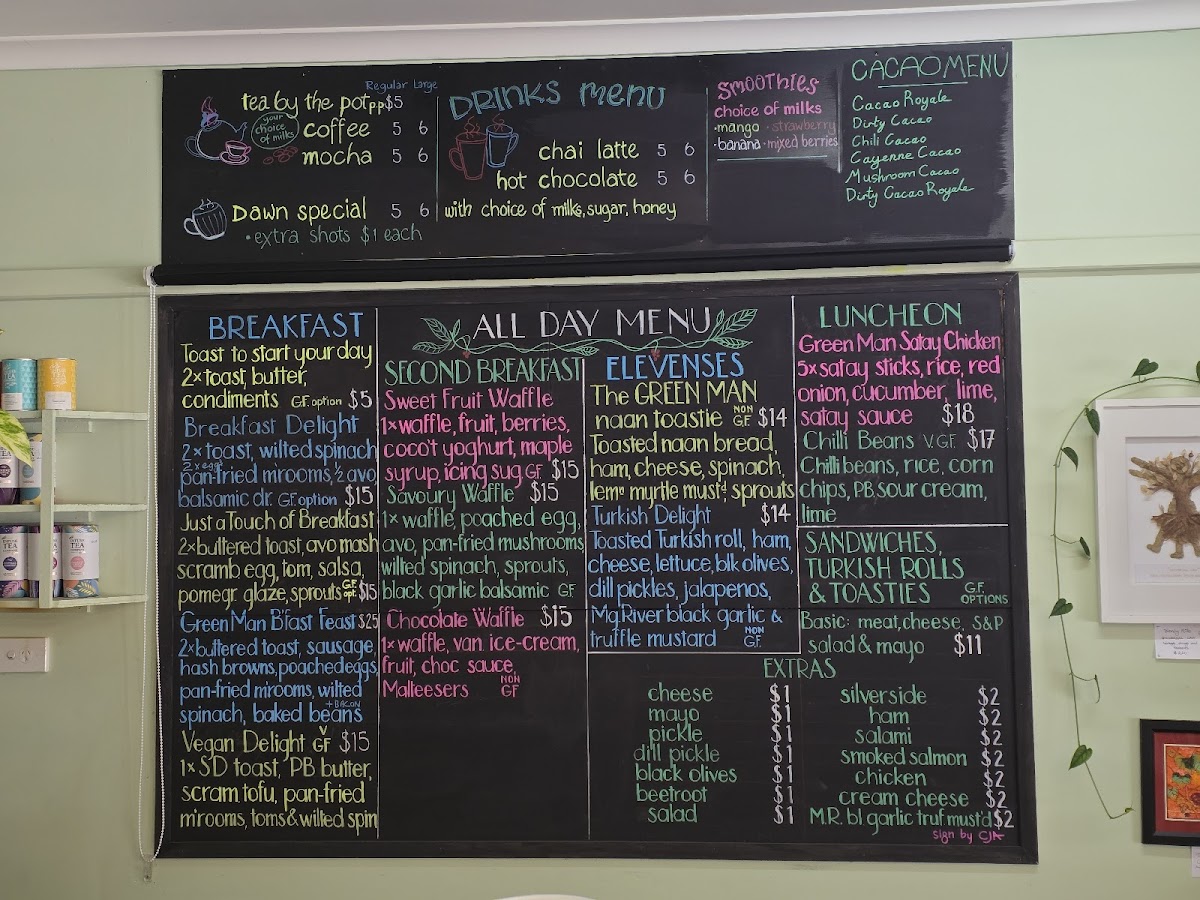 Regular Large
tea by the pot pp $5
your choice of milks
coffee 5 6
mocha 5 6
Dawn special 5 6
• extra shots $1 each
DRINKS menu
chai latte 5 6
hot chocolate 5 6
with choice of milks, sugar, honey
SMOOTHIES
choice of milks
• mango • strawberry
• banana • mixed berries
CACAO MENU
Cacao Royale
Dirty Cacao
Chili Cacao
Cayenne Cacao
Mushroom Cacao
Dirty Cacao Royale
BREAKFAST
Toast to start your day
2x toast, butter,
condiments G.F. option $5
Breakfast Delight
2x toast, wilted spinach
2x eggs
pan-fried m'rooms, ½ avo
balsamic dr. G.F. option $15
Just a Touch of Breakfast
2x buttered toast, avo mash
scramb. egg, tom, salsa,
pomegr. glaze, sprouts G.F. opt. $15
Green Man B'fast Feast $25
2x buttered toast, sausage,
hash browns, poached eggs,
pan-fried m'rooms, wilted
spinach, baked beans + BACON
Vegan Delight V GF $15
1x SD toast, PB butter,
scram tofu, pan-fried
m'rooms, toms & wilted spin
ALL DAY MENU
SECOND BREAKFAST
Sweet Fruit Waffle
1x waffle, fruit, berries,
coco't yoghurt, maple
syrup, icing sug GF. $15
Savoury Waffle $15
1x waffle, poached egg,
avo, pan-fried mushrooms
wilted spinach, sprouts,
black garlic balsamic GF
Chocolate Waffle $15
1x waffle, van. ice-cream,
fruit, choc sauce,
Malteesers NON GF
ELEVENSES
The GREEN MAN
naan toastie NON GF $14
Toasted naan bread,
ham, cheese, spinach,
lemn myrtle mustd, sprouts
Turkish Delight $14
Toasted Turkish roll, ham,
cheese, lettuce, blk olives,
dill pickles, jalapenos,
Mg.River black garlic &
truffle mustard NON G.F.
LUNCHEON
Green Man Satay Chicken
5x satay sticks, rice, red
onion, cucumber, lime,
satay sauce $18
Chilli Beans V. GF. $17
Chilli beans, rice, corn
chips, PB sour cream,
lime
SANDWICHES,
TURKISH ROLLS
& TOASTIES G.F. OPTIONS
Basic: meat, cheese, S&P
salad & mayo $11
EXTRAS
cheese $1
mayo $1
pickle $1
dill pickle $1
black olives $1
beetroot $1
salad $1
silverside $2
ham $2
salami $2
smoked salmon $2
chicken $2
cream cheese $2
M.R. bl garlic truf. must'd $2
sign by CJA
TEA
TEA